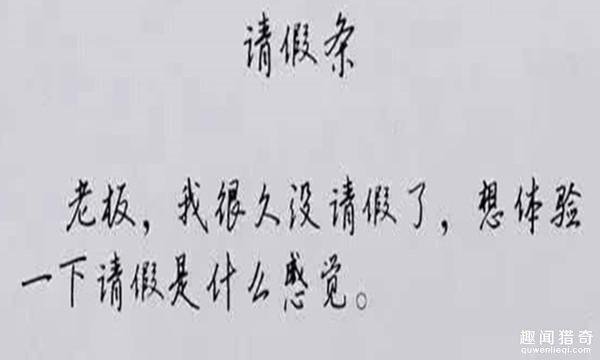 请假条
老板，我很久没请假了，想体验
一下请假是什么感觉。
趣闻猎奇
quwenlieqi.com